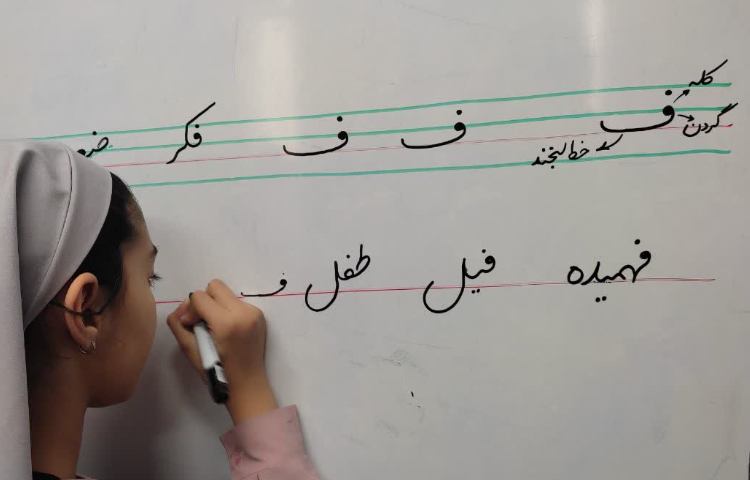 کله
ف ف ف فکر
گردن
خط لبخند
فهمیده فیل طفل ف